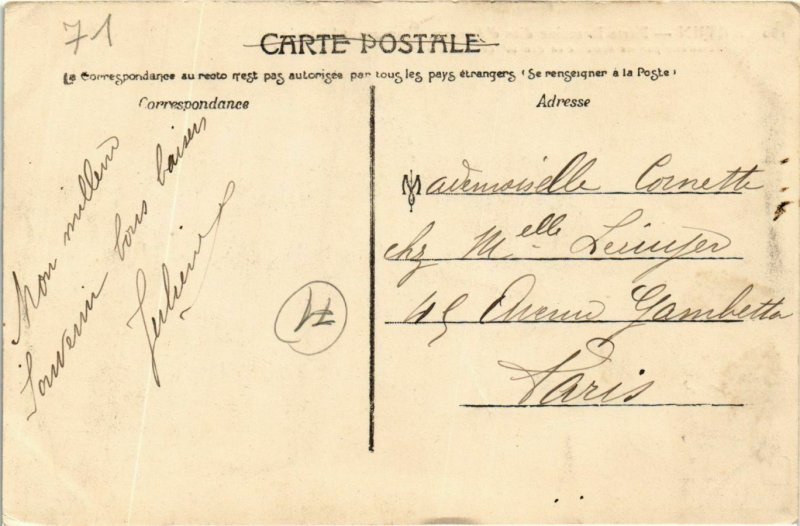 71
CARTE POSTALE
La Correspondance au recto n'est pas autorisée par tous les pays étrangers (Se renseigner à la Poste)
Correspondance
Mon meilleur
Souvenir bons baisers
Adresse
Mademoiselle Cornette
chz Melle
45 Avenue Gambetta
Paris